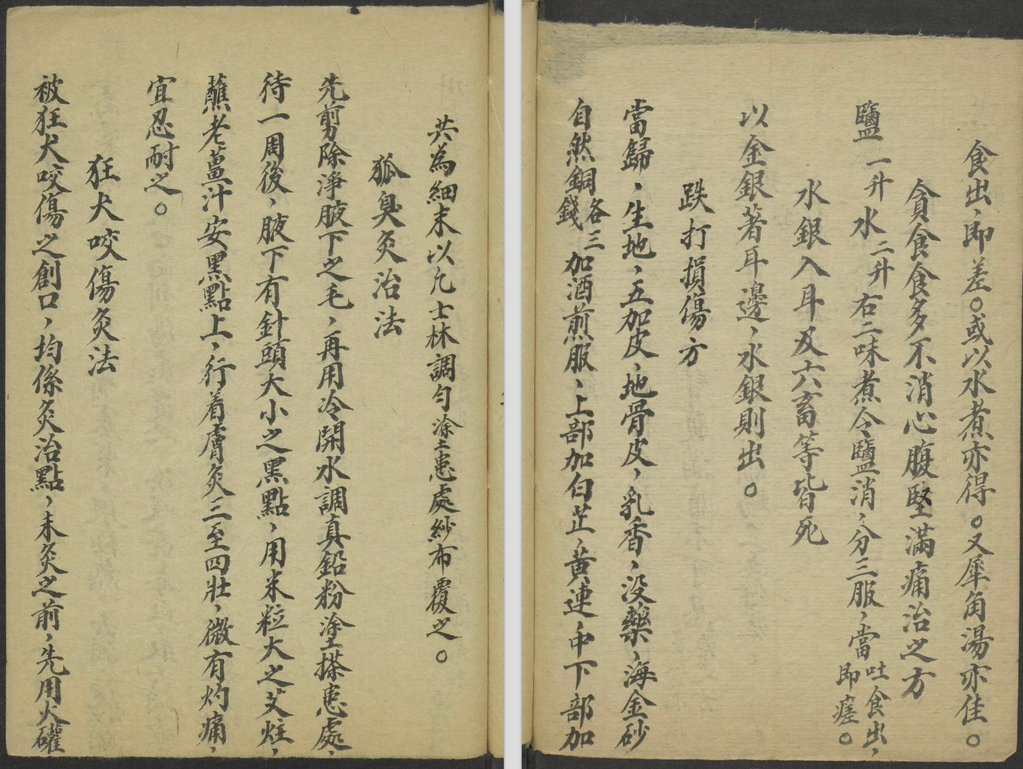 食出，即差。或以水煮亦得。又犀角湯亦佳。
貪食食多不消心腹堅滿痛治之方
鹽一升水二升右二味煮令鹽消，分三服，當吐食出，即瘥。
水銀入耳及六畜等皆死
以金銀著耳邊，水銀則出。
跌打損傷方
當歸，生地，五加皮，地骨皮，乳香，没藥，海金砂
自然銅錢各三加酒煎服，上部加白芷，黄連，中下部加
共為細末以凡士林調勻涂患處紗布覆之。
狐臭灸治法
先剪除淨腋下之毛，再用冷開水調真鉛粉塗搽患處，
待一周後，腋下有針頭大小之黑點，用米粒大之艾炷，
蘸老薑汁安黑點上，行着膚灸三至四壯，微有灼痛，
宜忍耐之。
狂犬咬傷灸法
被狂犬咬傷之創口，均係灸治點，未灸之前，先用火罐